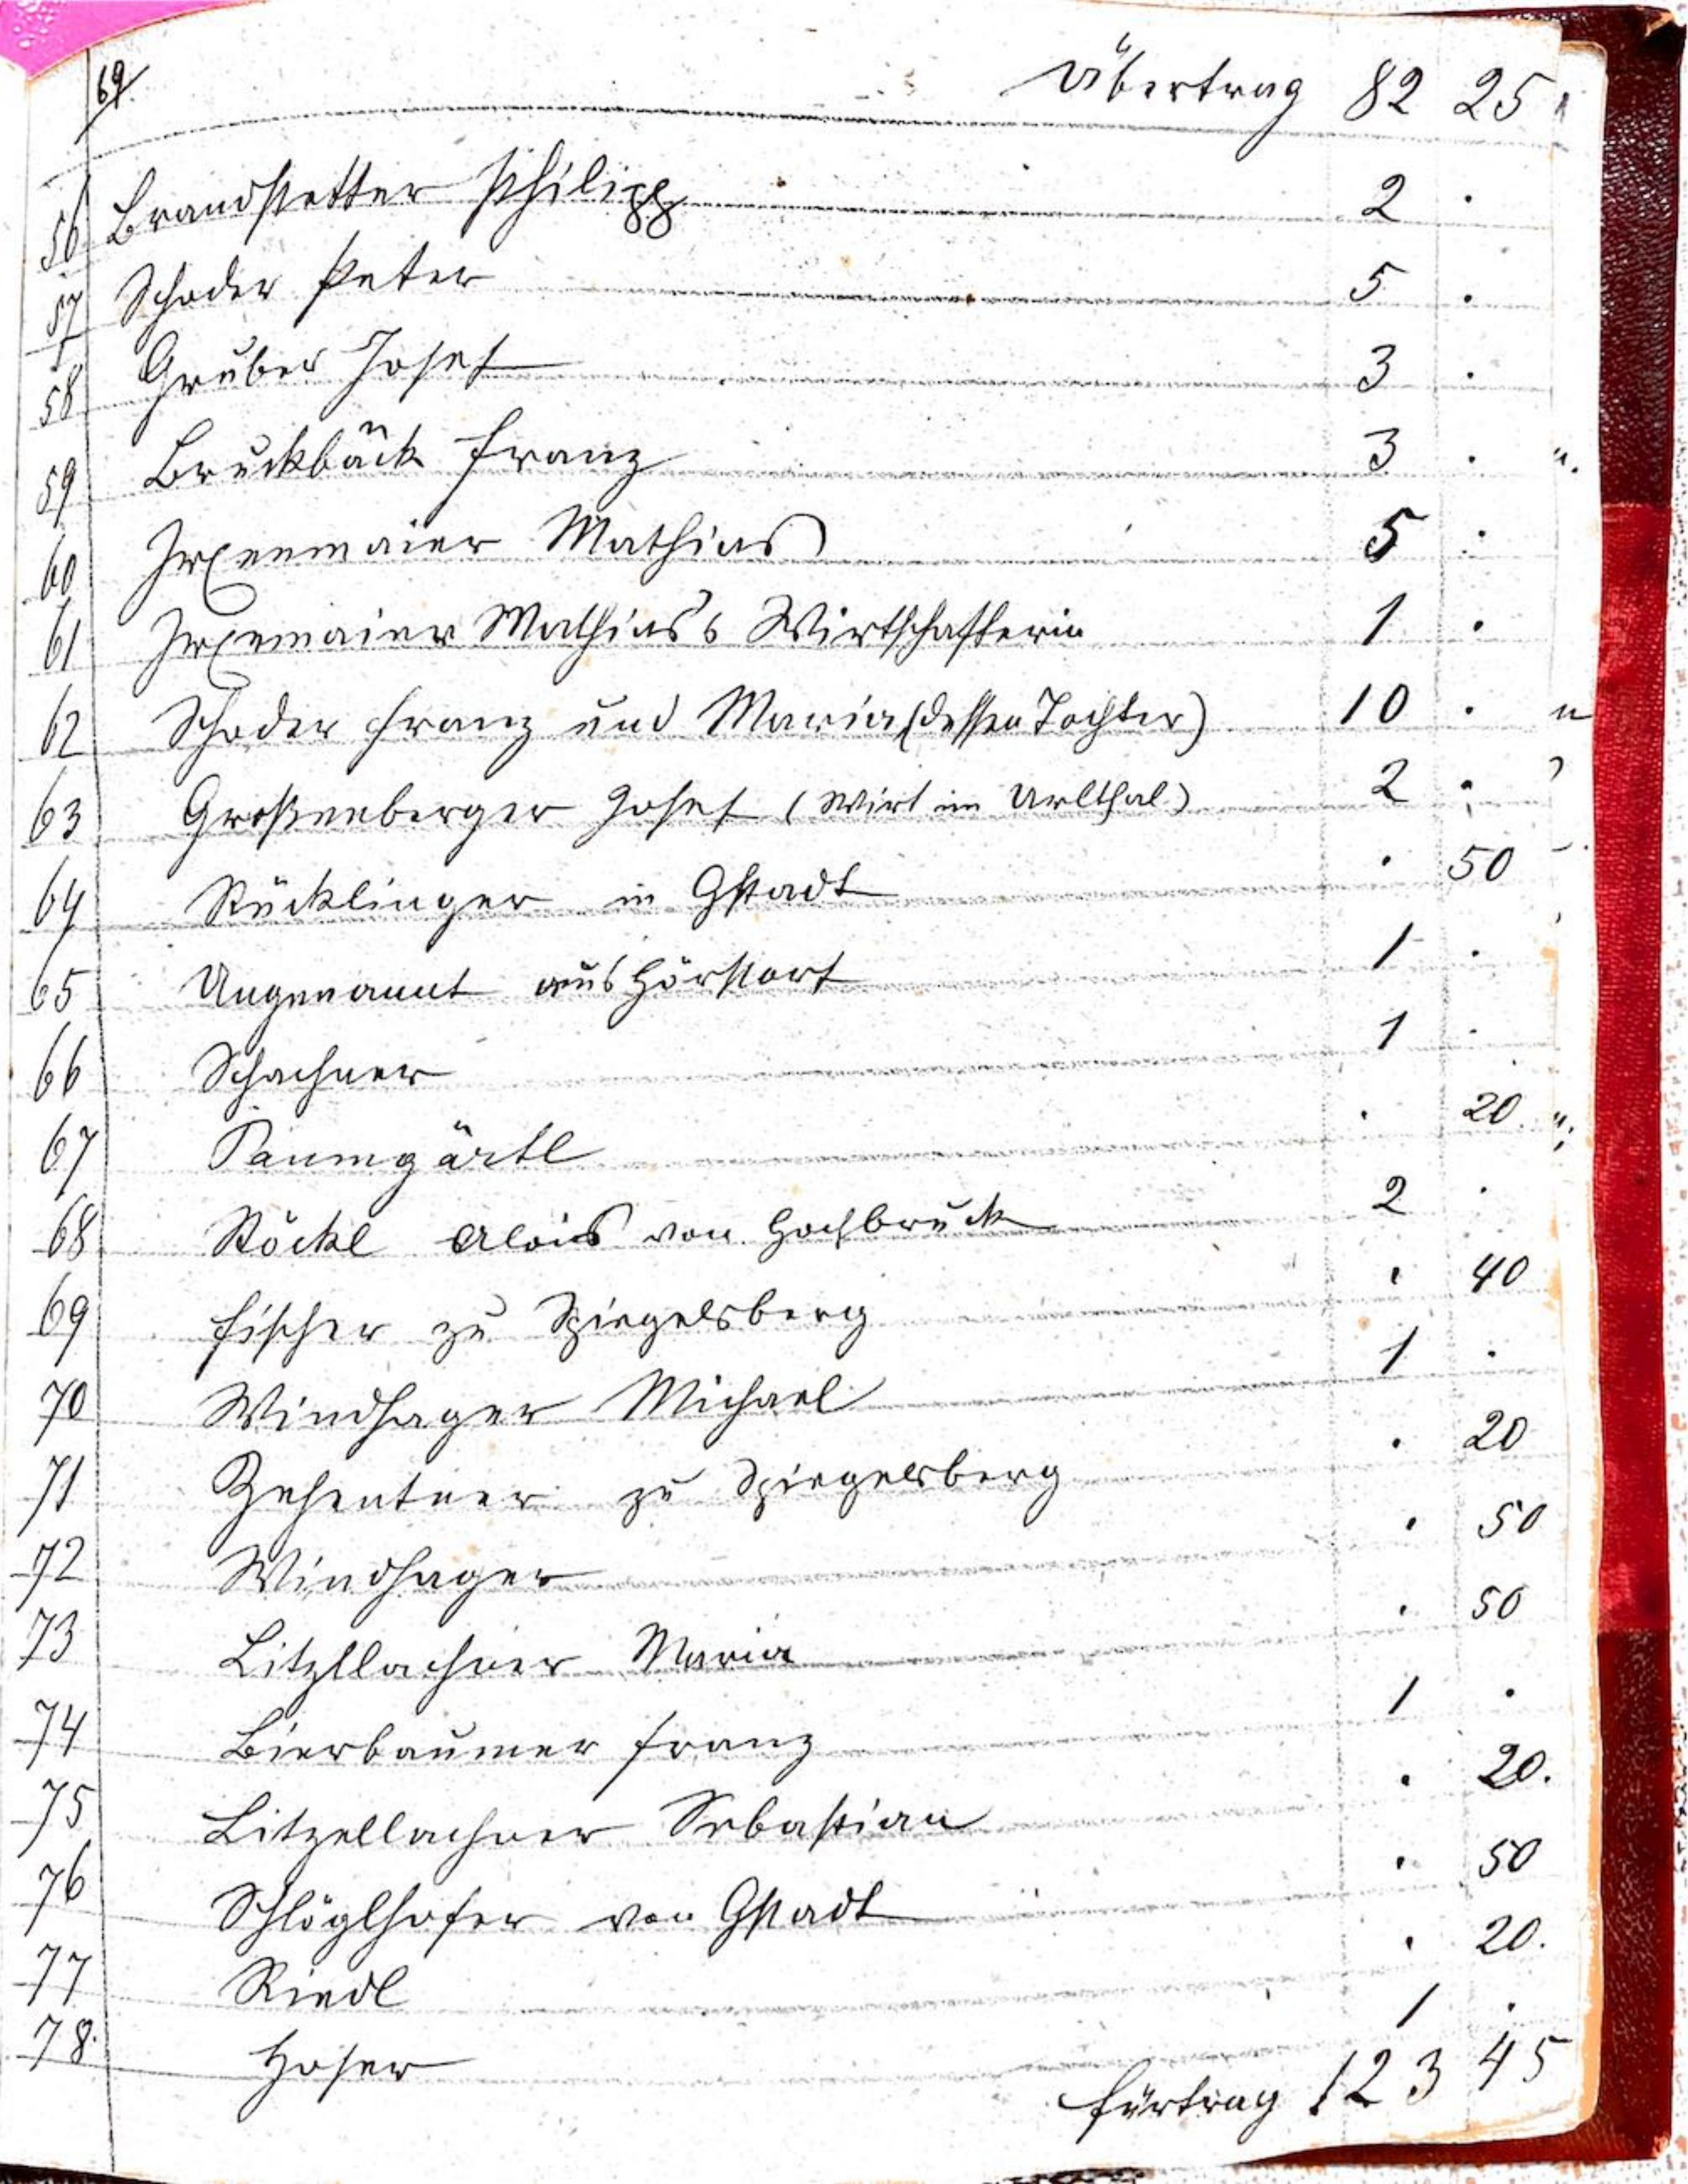 69. Übertrag 82 25
56 Brandstetter Philipp 2 .
57 Schoder Peter 5 .
58 Gruber Josef 3 .
59 Bruckbäck Franz 3 .
60 Irxenmaier Mathias 5 .
61 Irxenmaier Mathias's Wirtschafterin 1 .
62 Schoder Franz und Maria (dessen Tochter) 10 .
63 Großenberger Josef (Wirt im Urlthal) 2 .
64 Stücklinger in Gstadt . 50
65 Ungenannt aus 1 .
66 Schachner 1 .
67 Paumgärtl . 20
68 Stöckl Alois von Hochbruck 2 .
69 Fischer zu Spiegelsberg . 40
70 Windhager Michael 1 .
71 Zehentner zu Spiegelsberg . 20
72 Windhager . 50
73 Litzllachner Maria . 50
74 Bierbaumer Franz 1 .
75 Litzellachner Sebastian . 20.
76 Schlöglhofer von Gstadt . 50
77 Riedl . 20.
78. Hofer 1 .
Fürtrag 123 45